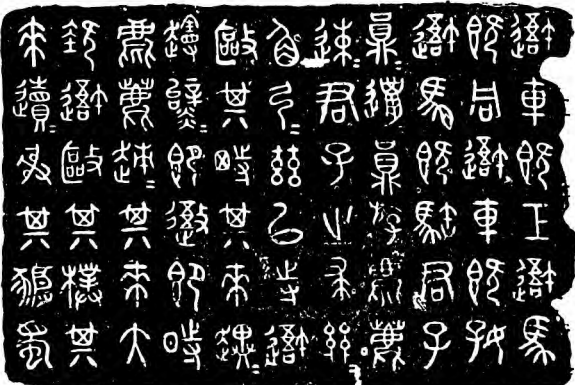 吾車既工吾馬
既同吾車既好
吾馬既䮲君子
員=邋=員斿麀鹿
速=君子之求
角弓=茲以寺吾
敺其特其來趩=
即御即時
麀鹿趚=其來大
吾敺其樸其
來䢱=射其豜蜀